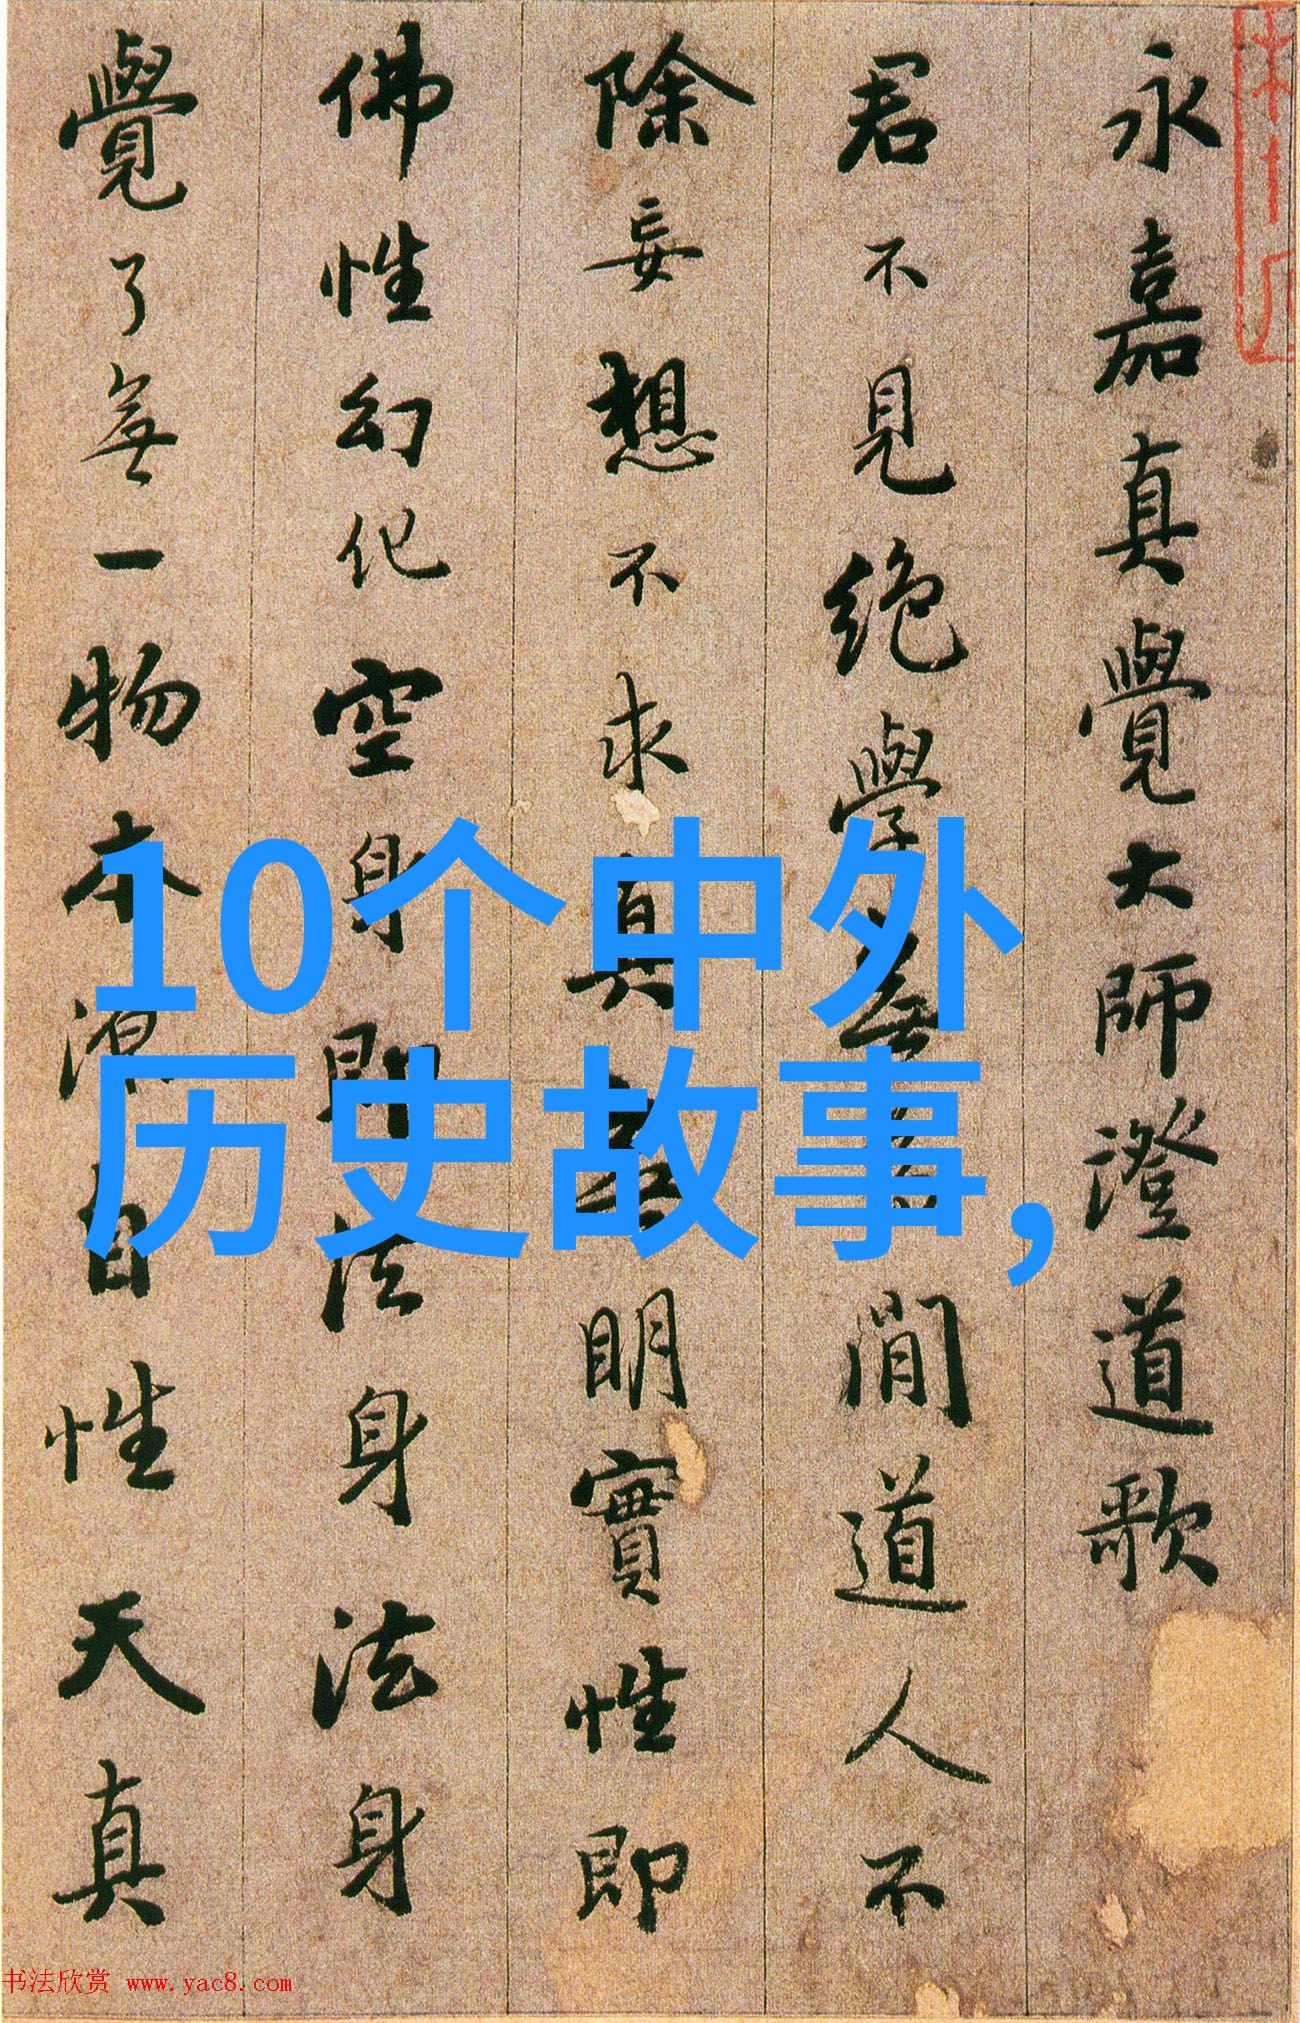 永嘉真覺大師澄道歌
君不見絶學無爲閒道人不
除妄想不求真無明實性即
佛性幻化空身即法身法身
覺了無一物本源自性天真
10个中外
历史故事,
书法欣赏 www.yac8.com